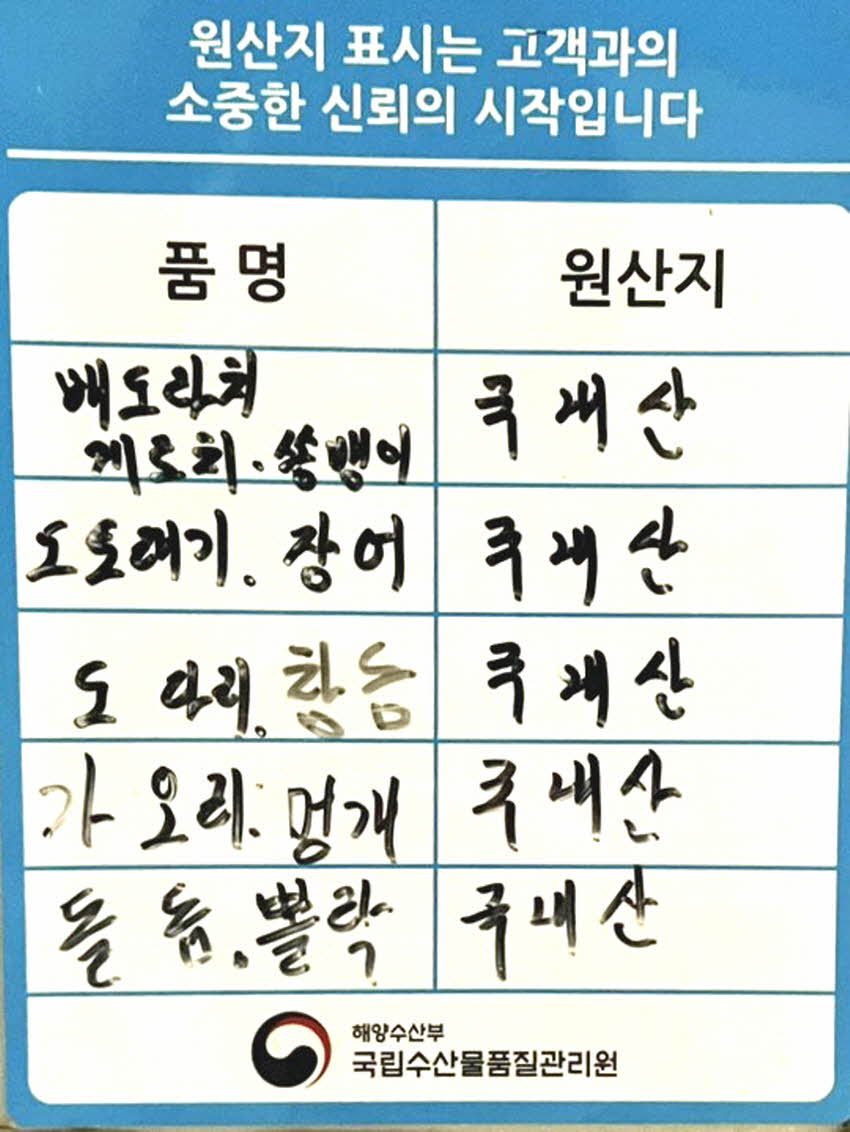 원산지 표시는 고객과의
소중한 신뢰의 시작입니다
품명 원산지
배도라치
게도치·쏨뱅이 국내산
도도여기. 장어 국내산
도다리. 참돔 국내산
가오리. 멍게 국내산
돌돔. 뽈락 국내산
해양수산부
국립수산물품질관리원